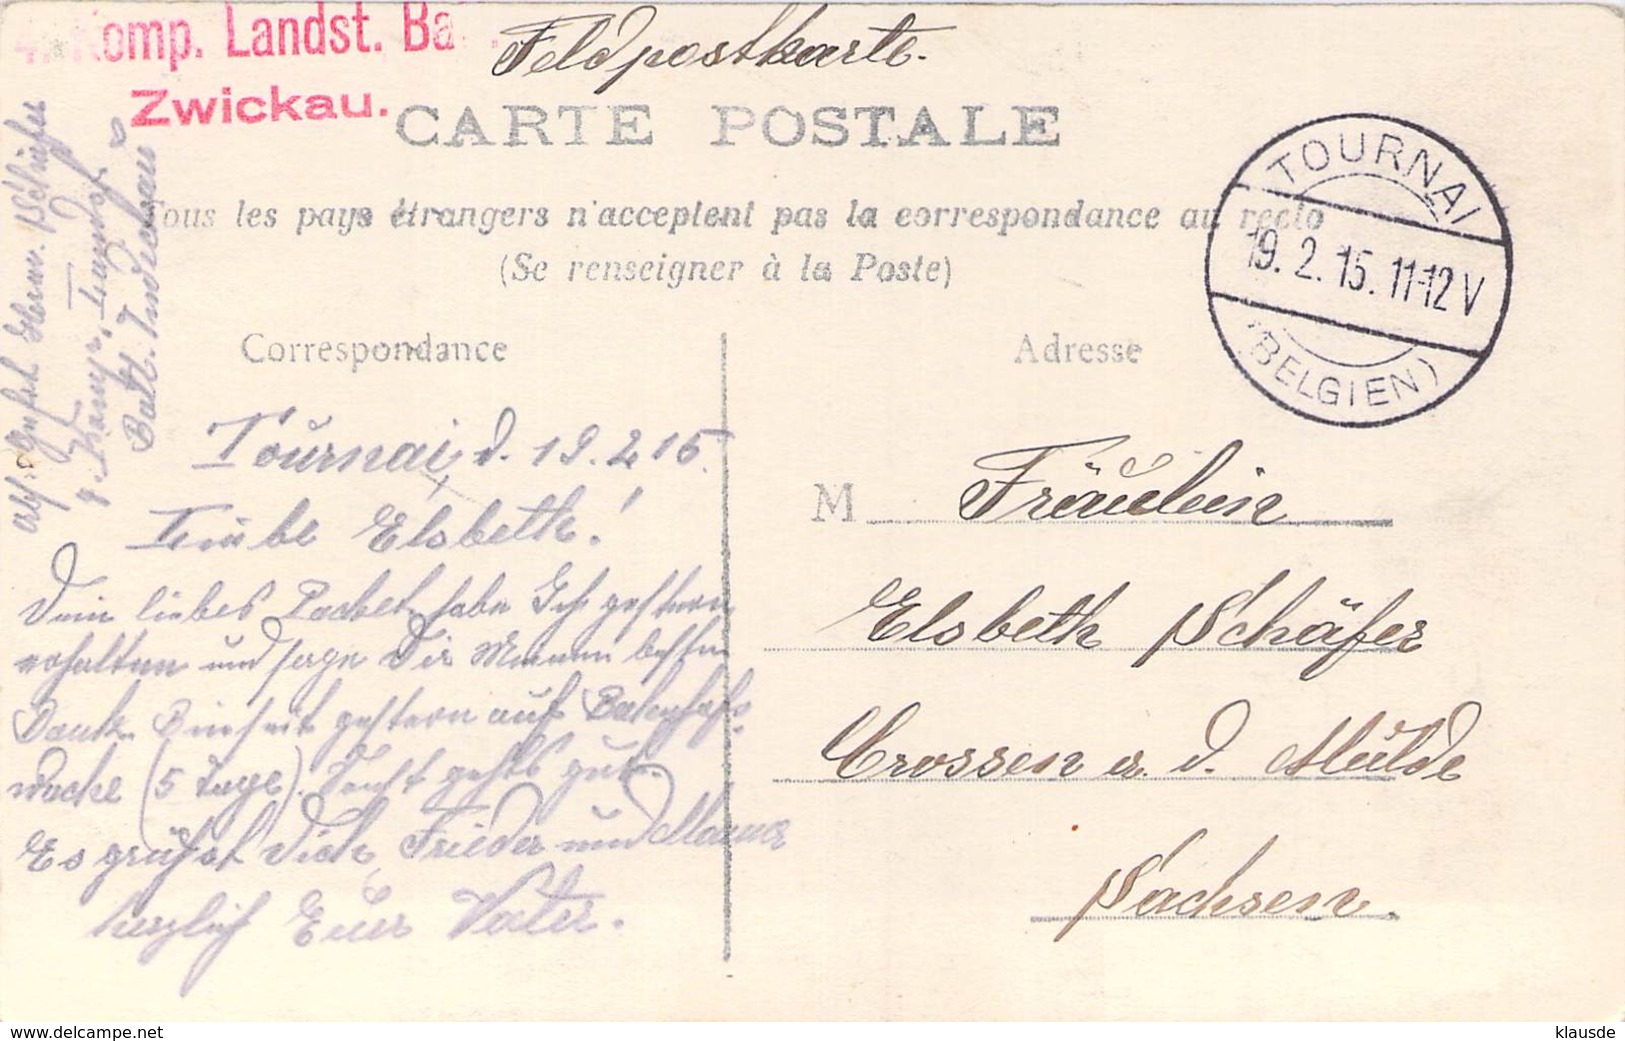 4. Komp. Landst. Ba
Zwickau.
Feldpostkarte.
CARTE POSTALE
Tous les pays étrangers n'acceptent pas la correspondance au recto
(Se renseigner à la Poste)
Correspondance
Adresse
TOURNAI
19. 2. 15. 11-12 V
(BELGIEN)
Abs: Gefr. Schäfer
4. Komp. Landst.
Batl. Zwickau
Tournai, d. 19.2.15.
Liebe Elsbeth!
Dein liebes Packet habe Ich gestern
erhalten und sage Dir Meinen besten
Dank. Bin seit gestern auf Bahnhofs-
wache (5 Tage). Sonst gehts gut.
Es grüßt Dich, Frieder und Mama
herzlich Euer Vater.
M Fräulein
Elsbeth Schäfer
Crossen a. d. Mulde
Sachsen.
www.delcampe.net
klausde